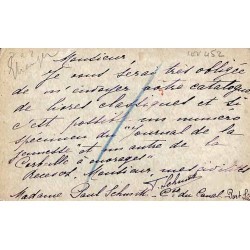 Monsieur
Je vous serais très obligée
de m'envoyer votre catalogue
de livres classiques et si
c'est possible un numéro
spécimen du "Journal de la
jeunesse" et un autre de la
"Corbeille à ouvrages".
Recevez, Monsieur, mes
Madame Paul Schmitt, du Canal